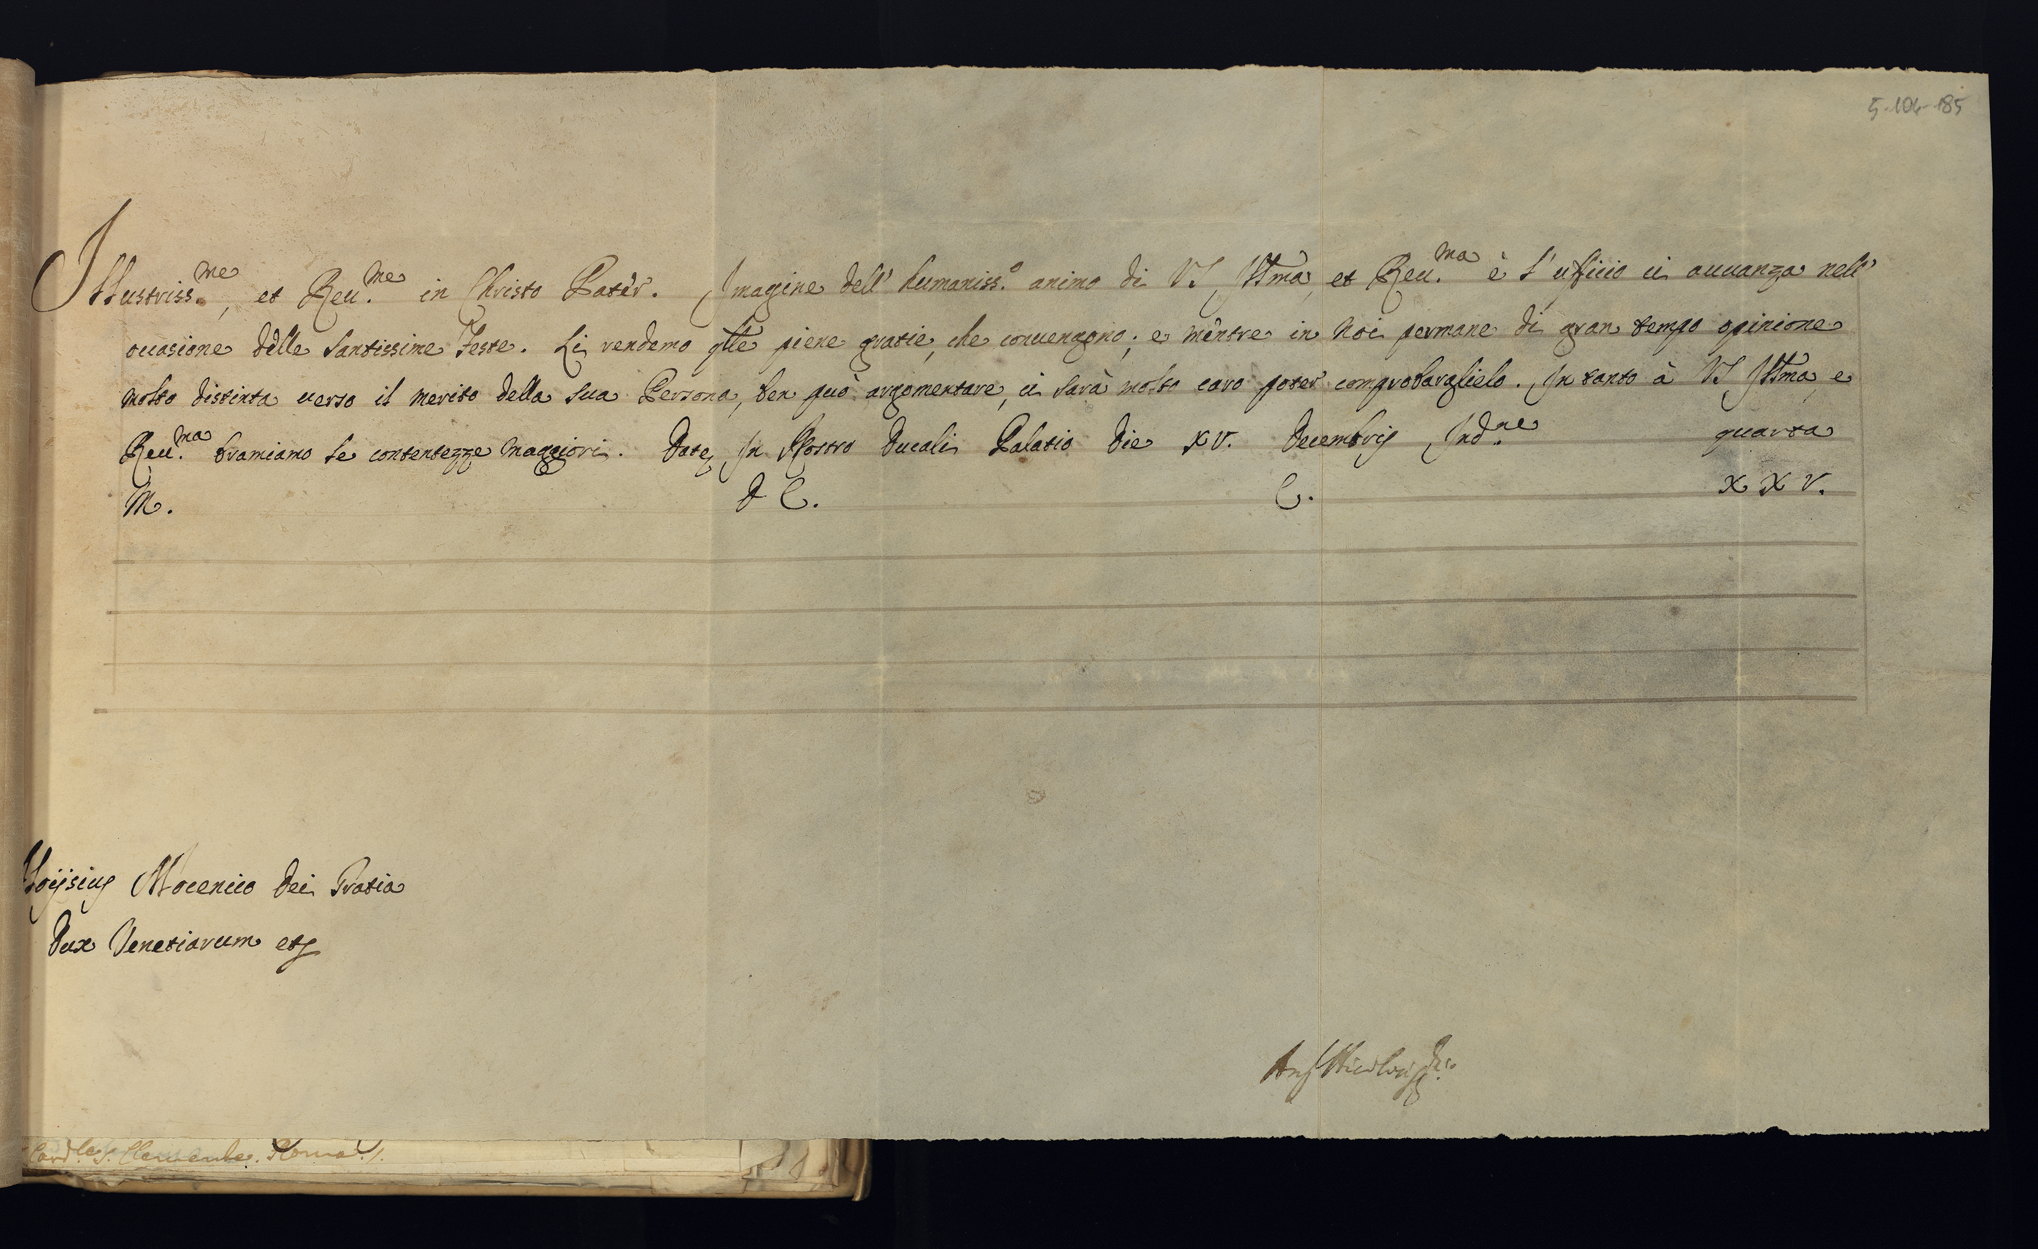 5-104-185
Illustriss.me, et Reu.me in Christo Patèr. Imagine dell' humaniss.o animo di V.S. Ill̃ma, et Reu.ma è l'ufficio ci auuanza nell'
occasione dèlle Santissime Feste. Li rendemo q̃lle piene gratie, che conuengono; e mentre in Noi permane di gran tempo opinione
molto distinta uerso il merito della sua Persona, ben può argomentare, ci sarà molto caro poter comprobarglielo. In tanto à V.S. Ill̃ma, e
Reu.ma bramiamo le contentezze maggiori. Datę In Nostro Ducali Palatio Die XV. Decembris Ind.ne quarta
M. D C. C. X X V.
Aloijsius Mocenico Dei Gratia
Dux Venetiarum etc
Card.le S. Clemente. Roma